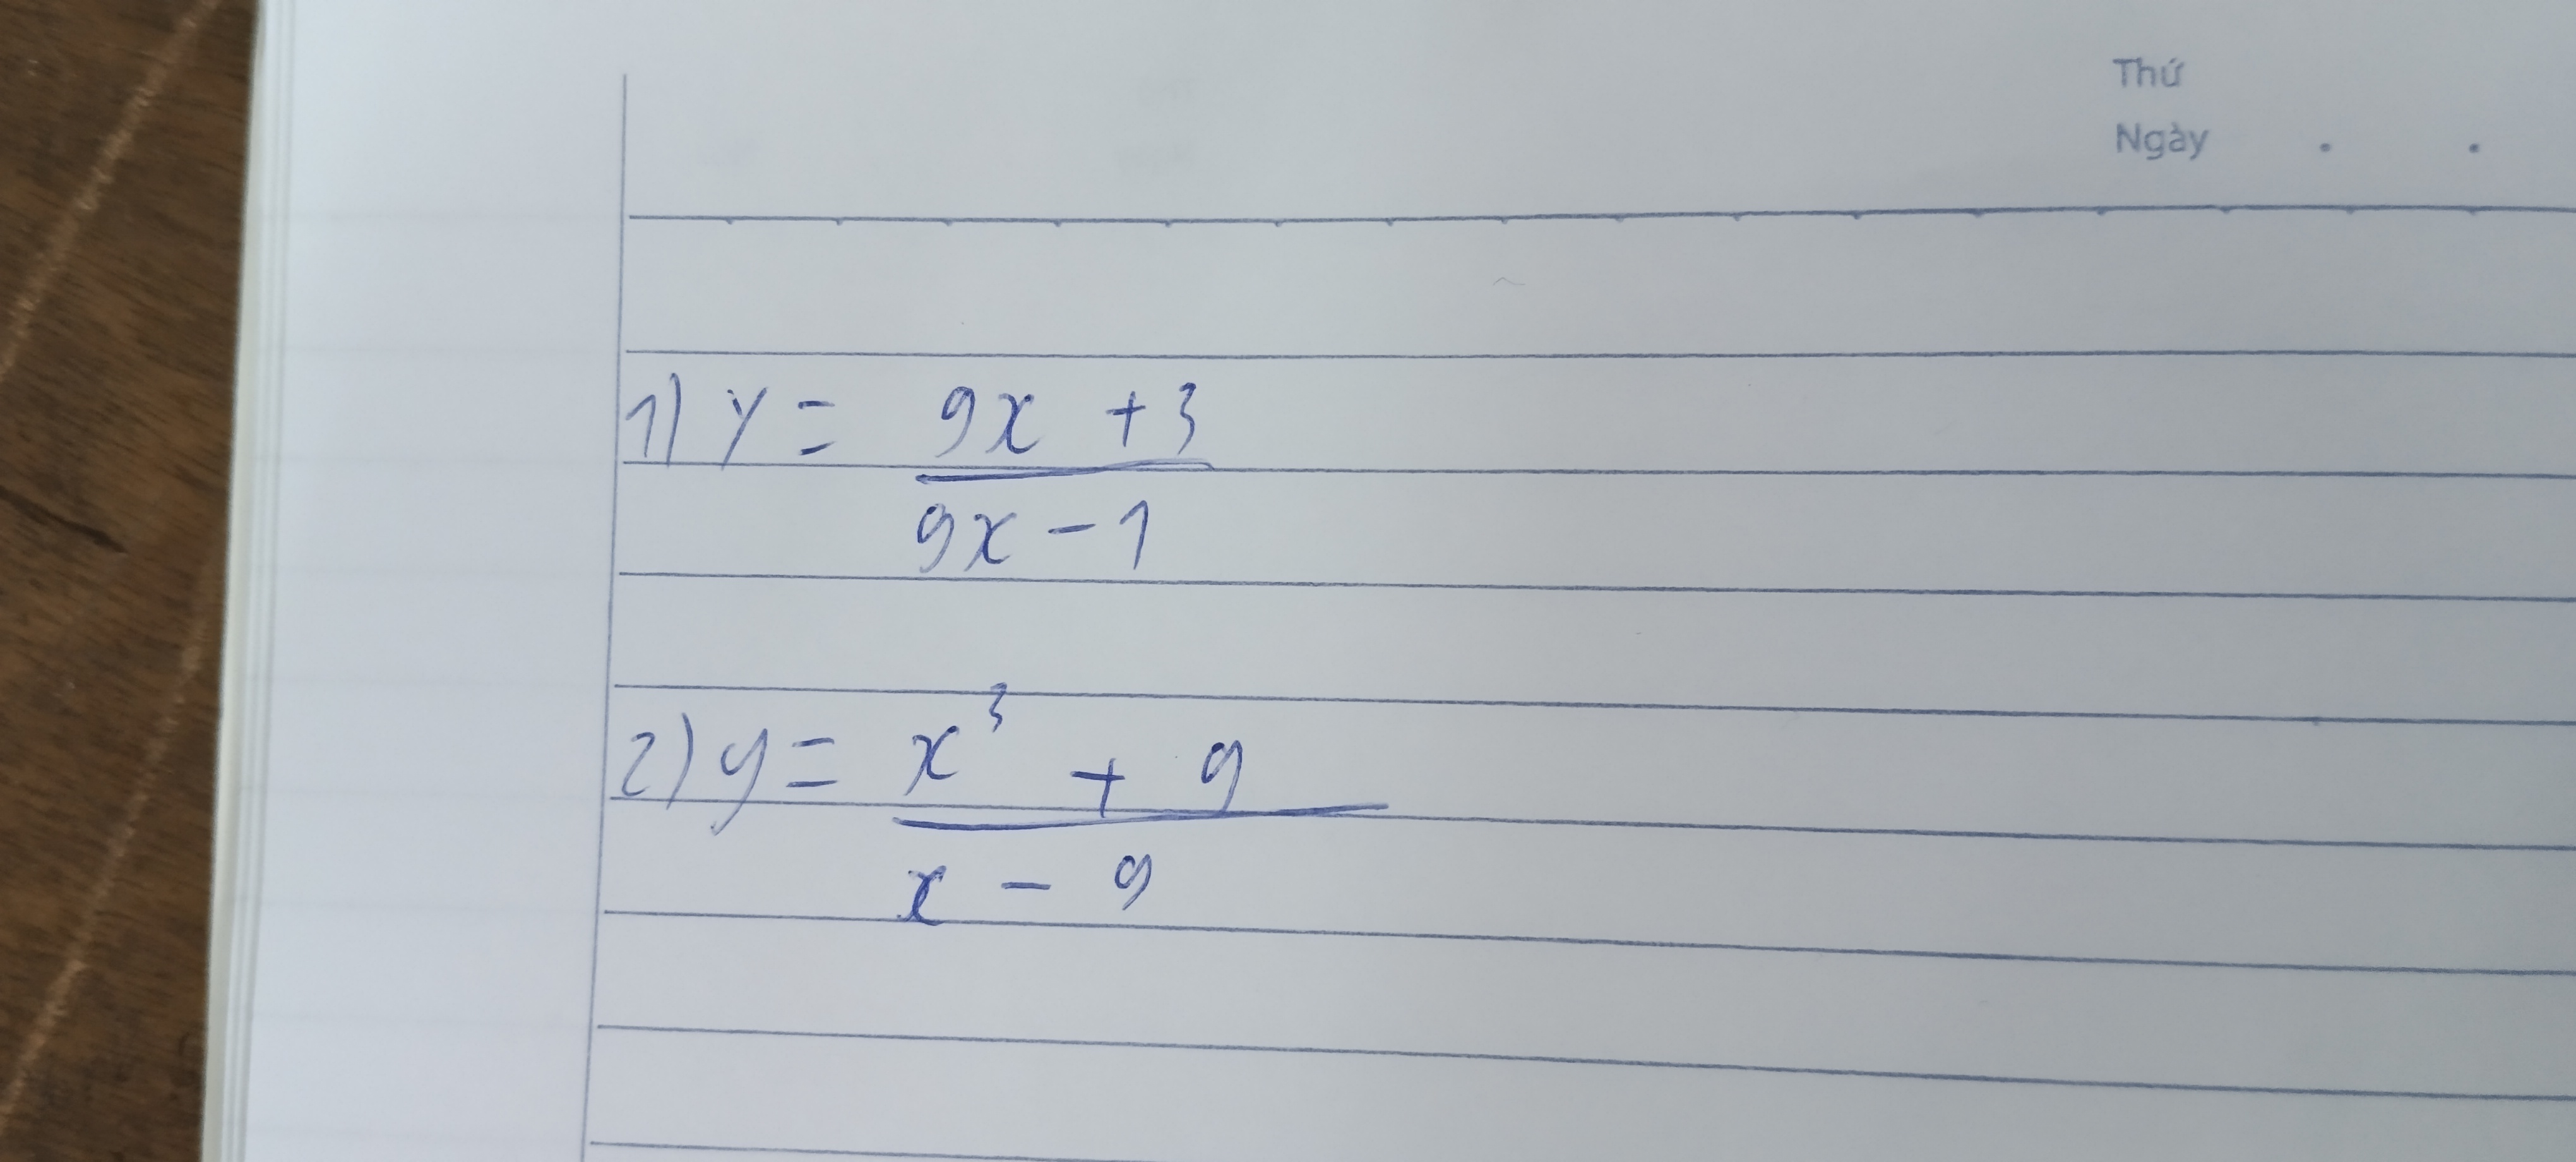 Thứ
Ngày . .
1) y = 9x + 3
9x - 1
2) y = x³ + 9
x - 9